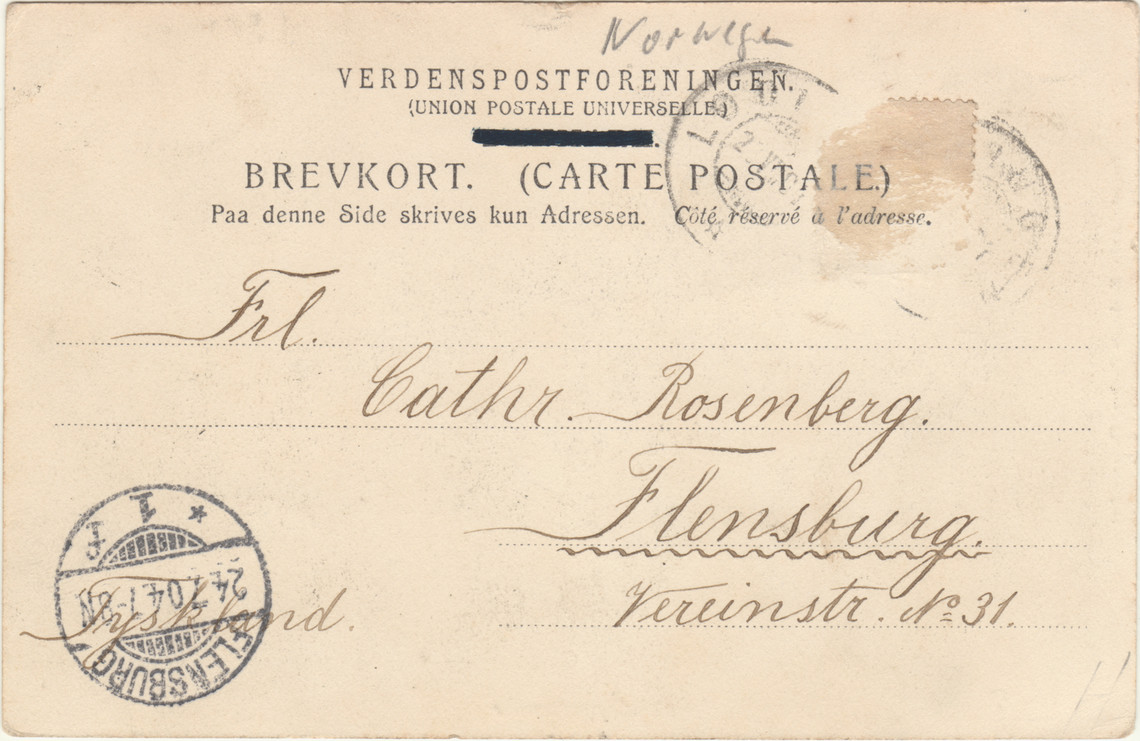 Norwegen
VERDENSPOSTFORENINGEN.
(UNION POSTALE UNIVERSELLE.)
BREVKORT. (CARTE POSTALE.)
Paa denne Side skrives kun Adressen. Côté réservé à l'adresse.
Frl.
Cathr. Rosenberg.
Flensburg.
Tyskland.
Vereinstr. No 31.
FLENSBURG
24.7.04.7-8N
* 1 f